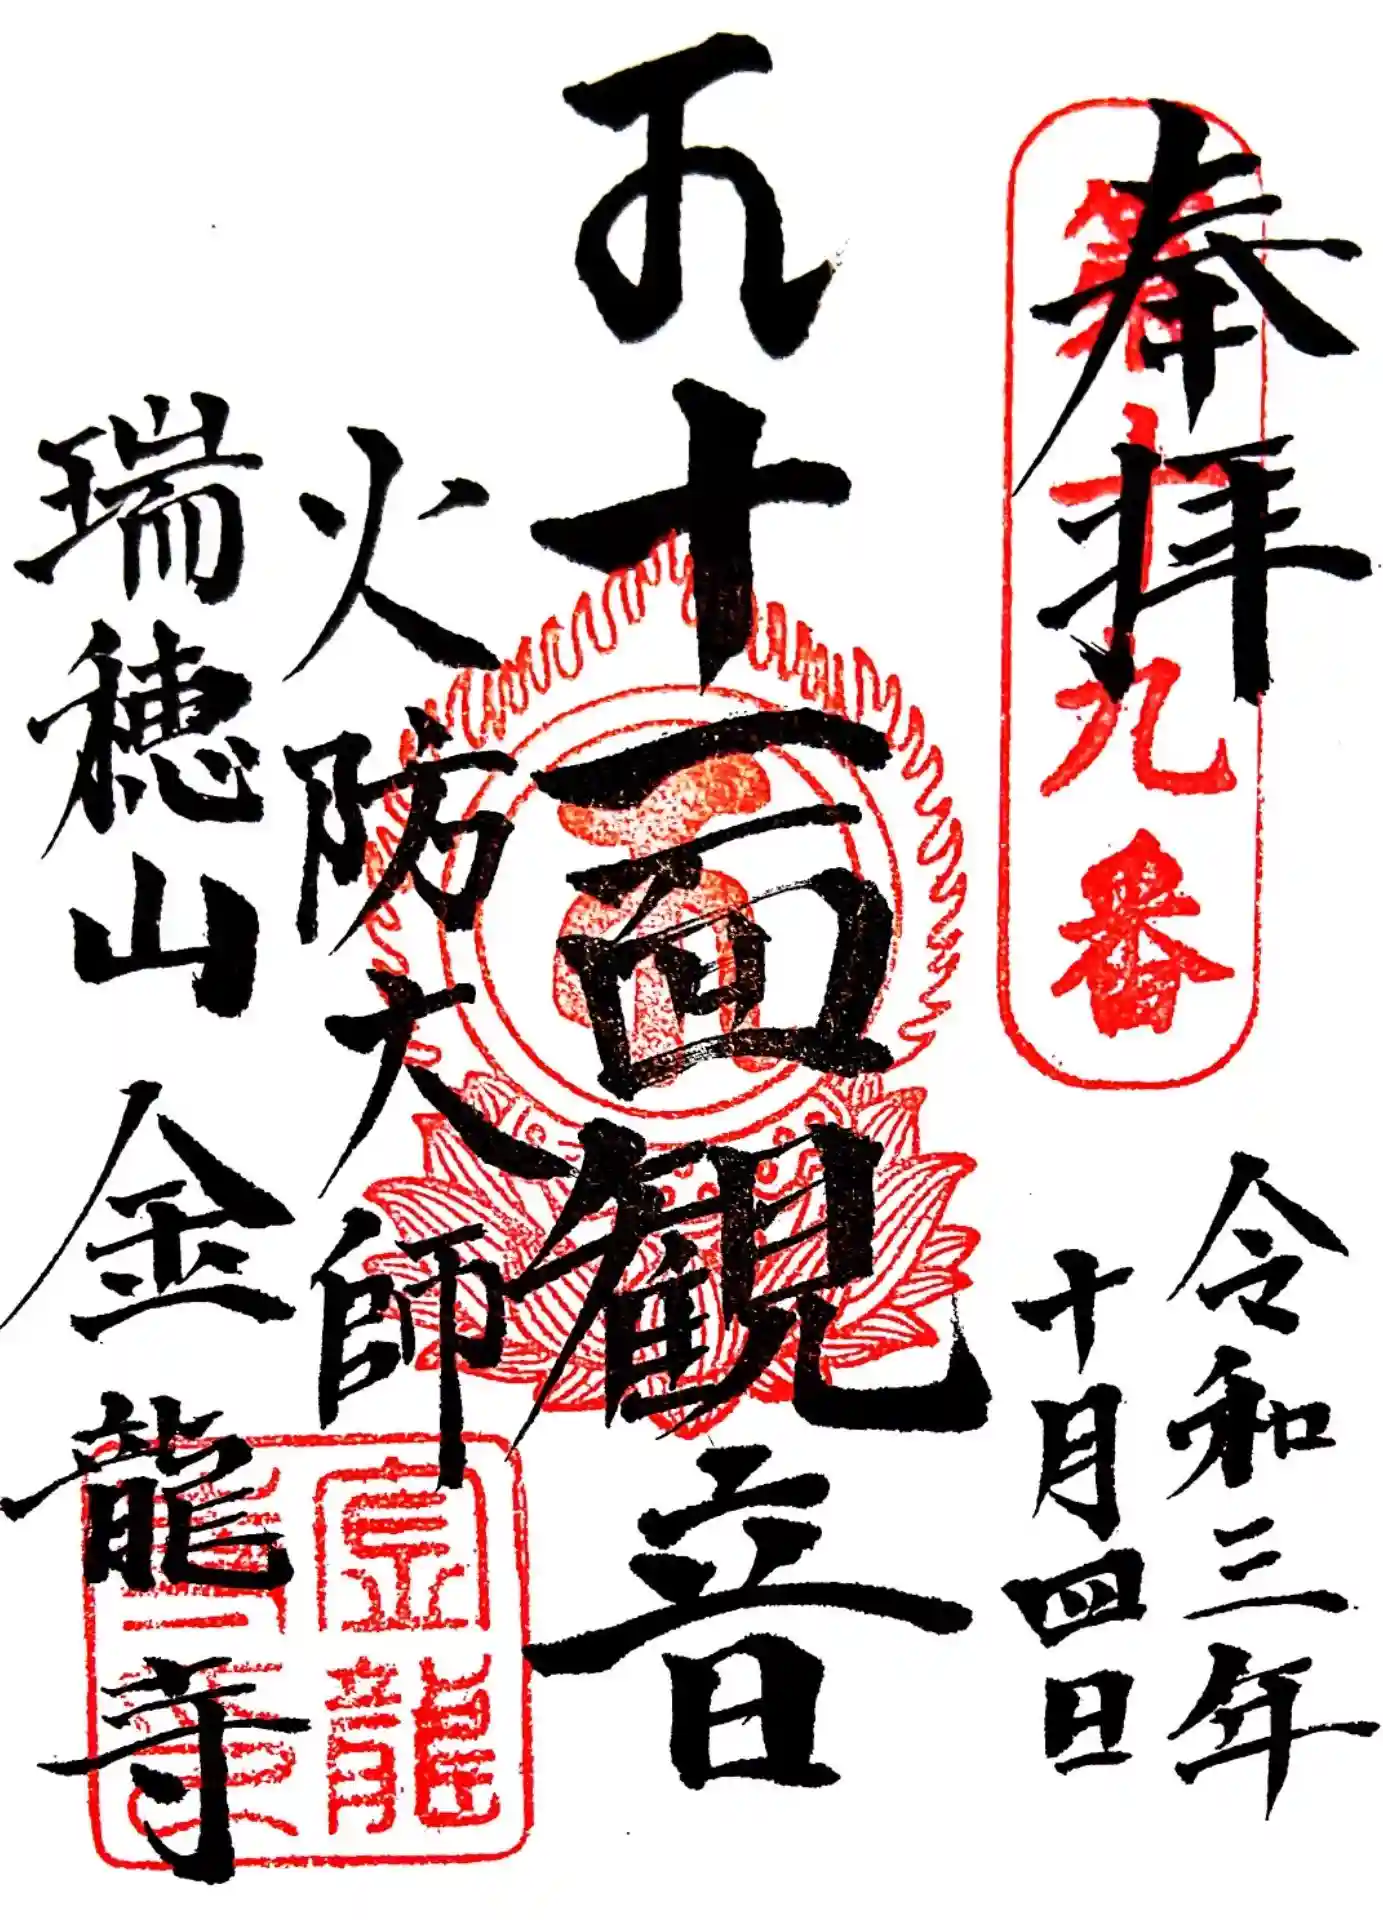 奉拝
第十九番
令和三年
十月四日
十一面観音
火防大師
瑞穂山 金龍寺
金龍